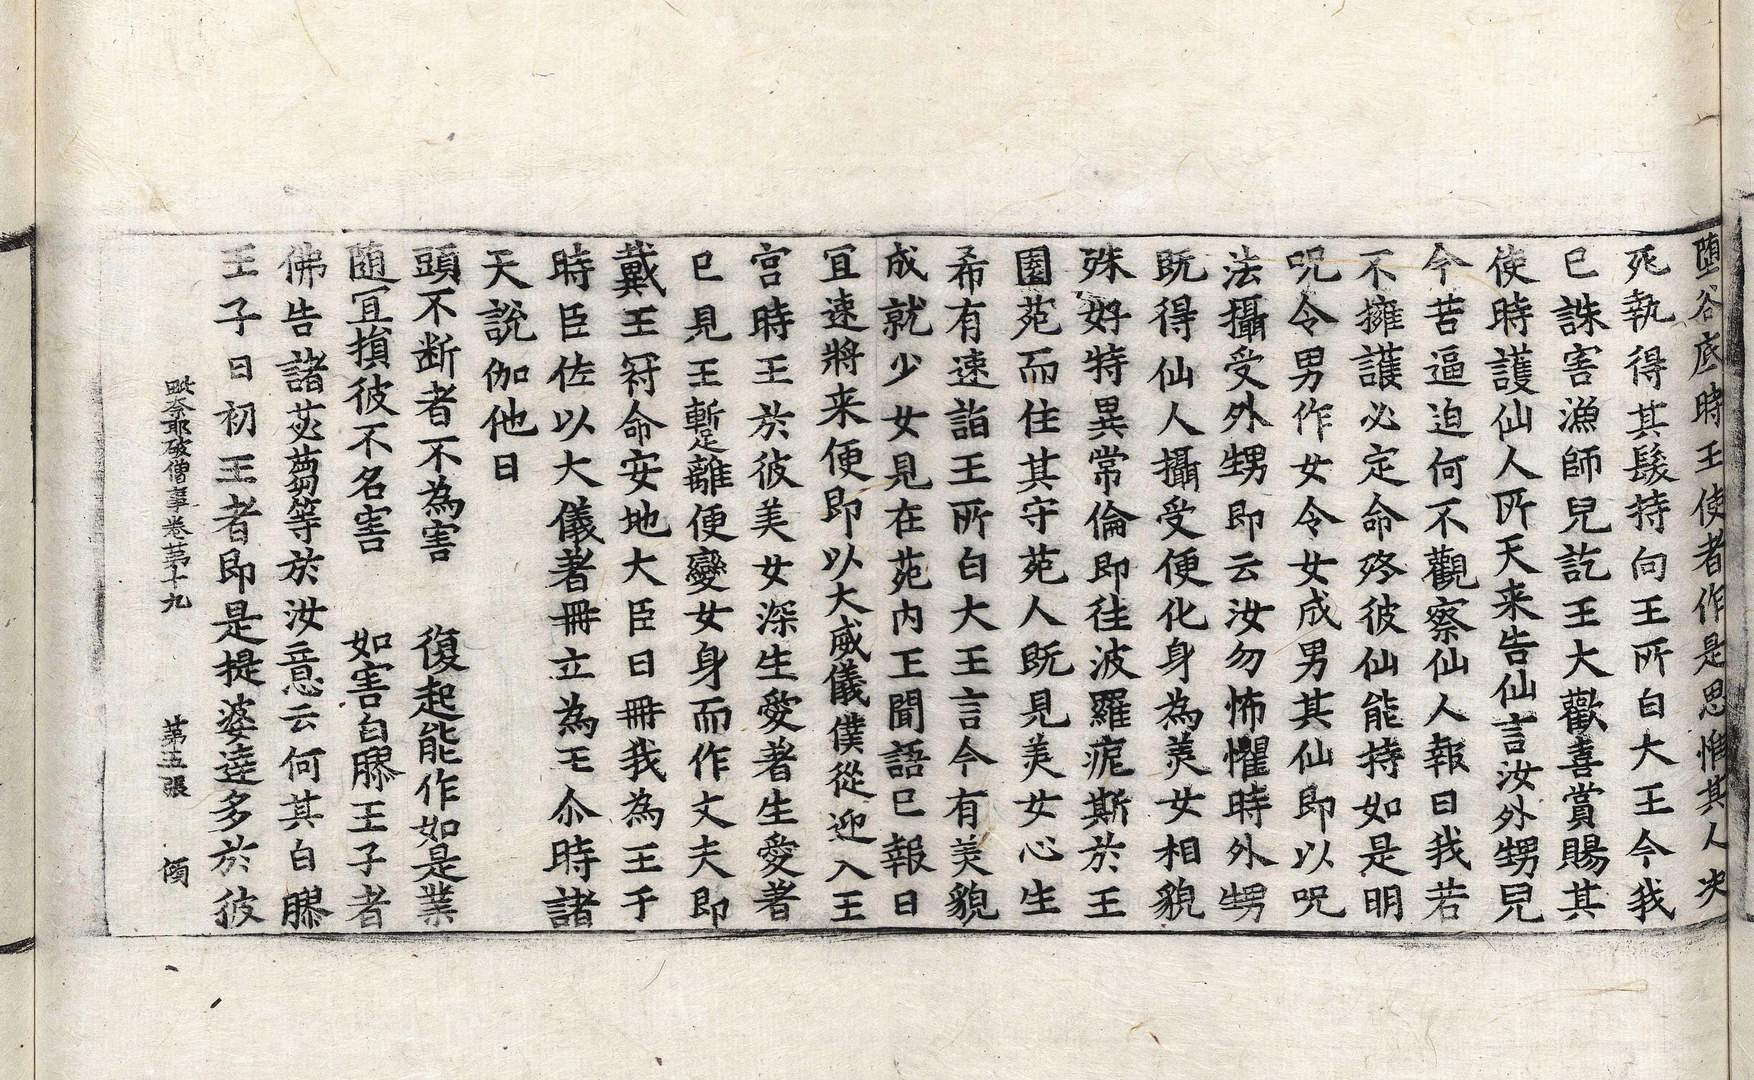 墮谷底時王使者作是思惟其人決
死執得其髮持向王所白大王今我
已誅害漁師兒訖王大歡喜賞賜其
使時護仙人所天来告仙言汝外甥兒
今苦逼迫何不觀察仙人報曰我若
不擁護必定命終彼仙能持如是明
呪令男作女令女成男其仙即以呪
法攝受外甥即云汝勿怖懼時外甥
既得仙人攝受便化身為美女相貌
殊好特異常倫即徃波羅痆斯於王
園苑而住其守苑人既見美女心生
希有速詣王所白大王言今有美貌
成就少女見在苑內王聞語已報曰
冝速將来便即以大威儀僕從迎入王
宮時王於彼美女深生愛著生愛著
已見王蹔離便變女身而作丈夫即
戴王冠命安地大臣曰冊我為王于
時臣佐以大儀著冊立為王尒時諸
天說伽他曰
頭不断者不為害　復起能作如是業
随冝損彼不名害　如害白膠王子者
佛告諸苾蒭等於汝意云何其白膠
王子曰初王者即是提婆達多於彼
毗奈耶破僧事卷苐十九　苐五張